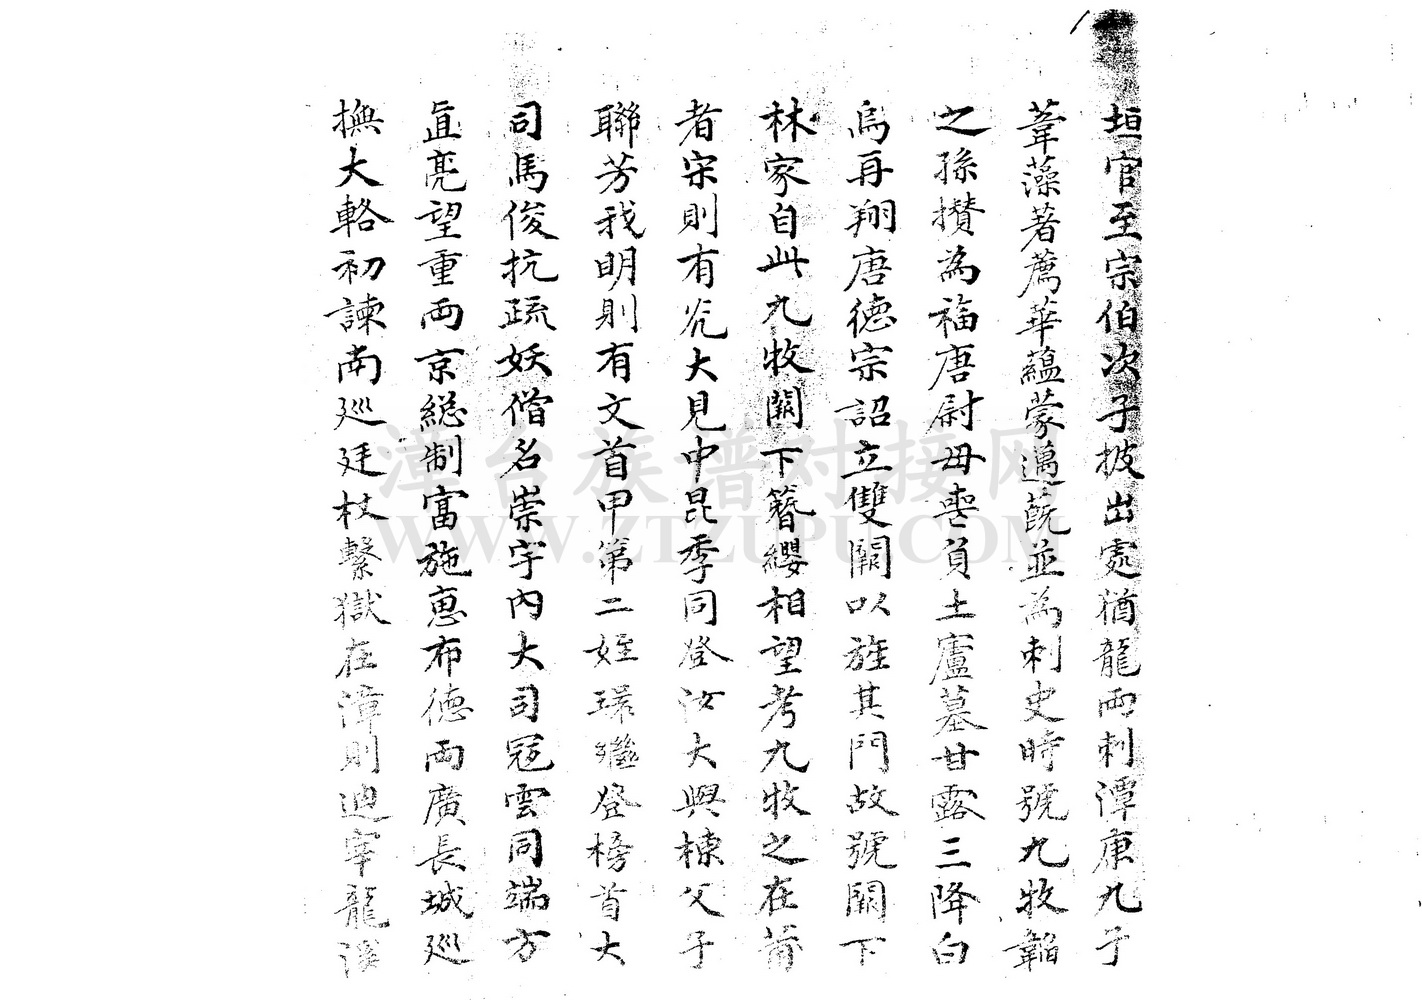 垣官至宗伯次子披出處猶龍两刺潭康九子
葦藻著薦華蘊蒙邁蔇並為刺史時號九牧韜
之孫攅為福唐尉毋喪負土廬墓甘露三降白
烏再翔唐德宗詔立雙闕以旌其門故號闕下
林家自此九牧闕下簪纓相望考九牧之在莆
者宋則有光大見中昆季同登汝大興棟父子
聯芳我明則有文首甲第二姪環繼登榜首大
司馬俊抗疏妖僧名崇宇内大司冦雲同端方
直亮望重两京総制富施恵布德两廣長城廵
撫大輅初諫南廵廷杖繫獄在漳則廸宰龍溪
漳台族谱对接网
WWW.ZTZUPU.COM